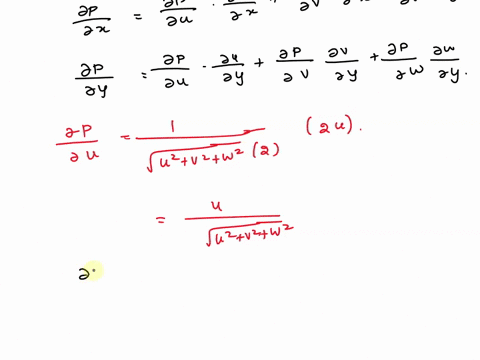 ∂P/∂x = ∂P/∂u · ∂u/∂x + ∂P/∂v ·
∂P/∂y = ∂P/∂u · ∂u/∂y + ∂P/∂v ∂v/∂y + ∂P/∂w ∂w/∂y.
∂P/∂u = 1/(√(u²+v²+w²) (2)) (2u).
= u/√(u²+v²+w²)
∂